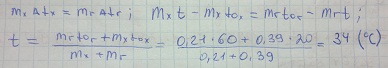 mₓ Δtₓ = mᵣ Δtᵣ ; mₓt - mₓt₀ₓ = mᵣt₀ᵣ - mᵣt ;
t = (mᵣt₀ᵣ + mₓt₀ₓ) / (mₓ + mᵣ) = (0,21 · 60 + 0,39 · 20) / (0,21 + 0,39) = 34 (°C)